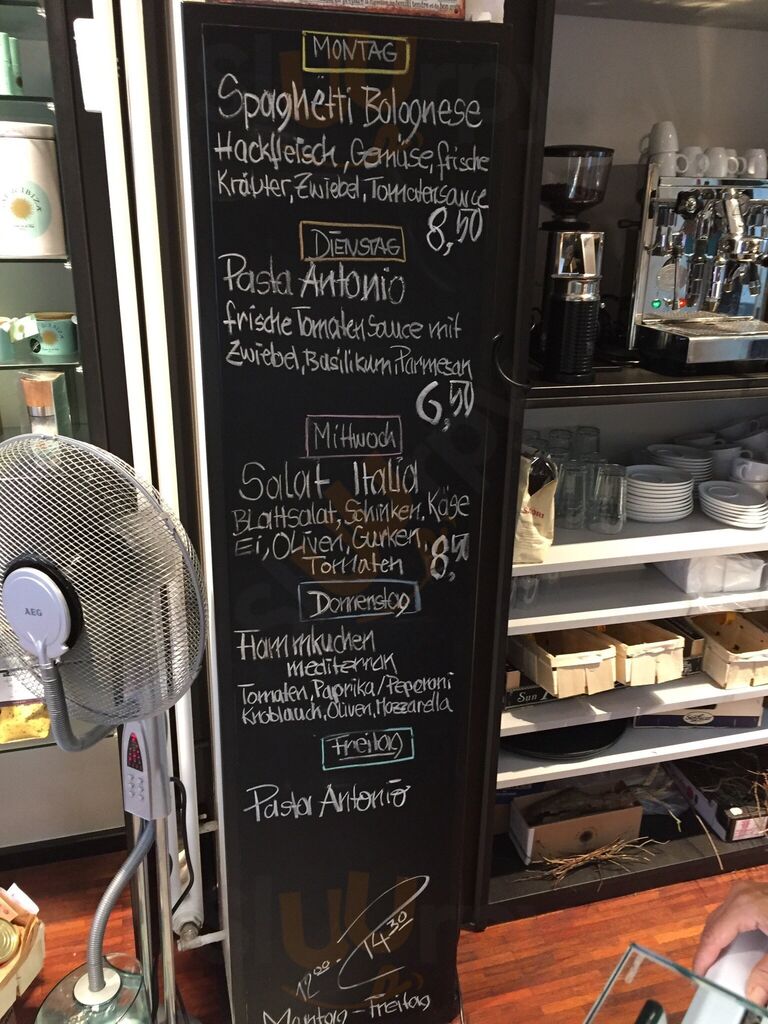 MONTAG
Spaghetti Bolognese
Hackfleisch, Gemüse, frische
Kräuter, Zwiebel, Tomatensauce
8,50
DIENSTAG
Pasta Antonio
frische Tomatensauce mit
Zwiebel, Basilikum, Parmesan
6,50
Mittwoch
Salat Italia
Blattsalat, Schinken, Käse
Ei, Oliven, Gurken,
Tomaten 8,50
Donnerstag
Flammkuchen
mediterran
Tomaten, Paprika/Peperoni
Knoblauch, Oliven, Mozzarella
Freitag
Pasta Antonio
12.00 - 14.30
Montag - Freitag
AEG